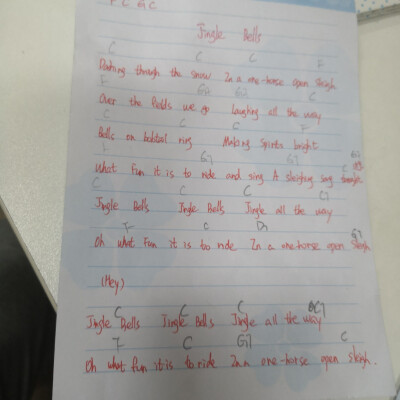 F C G C
Jingle Bells
C C C F
Dashing through the snow In a one-horse open sleigh
F G7 G7 C
Over the fields we go laughing all the way
C C C F
Bells on bobtail ring Making Spirits bright
F G7 G7 C
What fun it is to ride and sing A sleighing song tonight
C C C C7
Jingle Bells Jingle Bells Jingle all the way
F C D7 G7
Oh what Fun it is to ride In a one-horse open Sleigh
(Hey)
C C C C7
Jingle Bells Jingle Bells Jingle all the way
F C G7 C
Oh what fun it is to ride In a one-horse open sleigh.